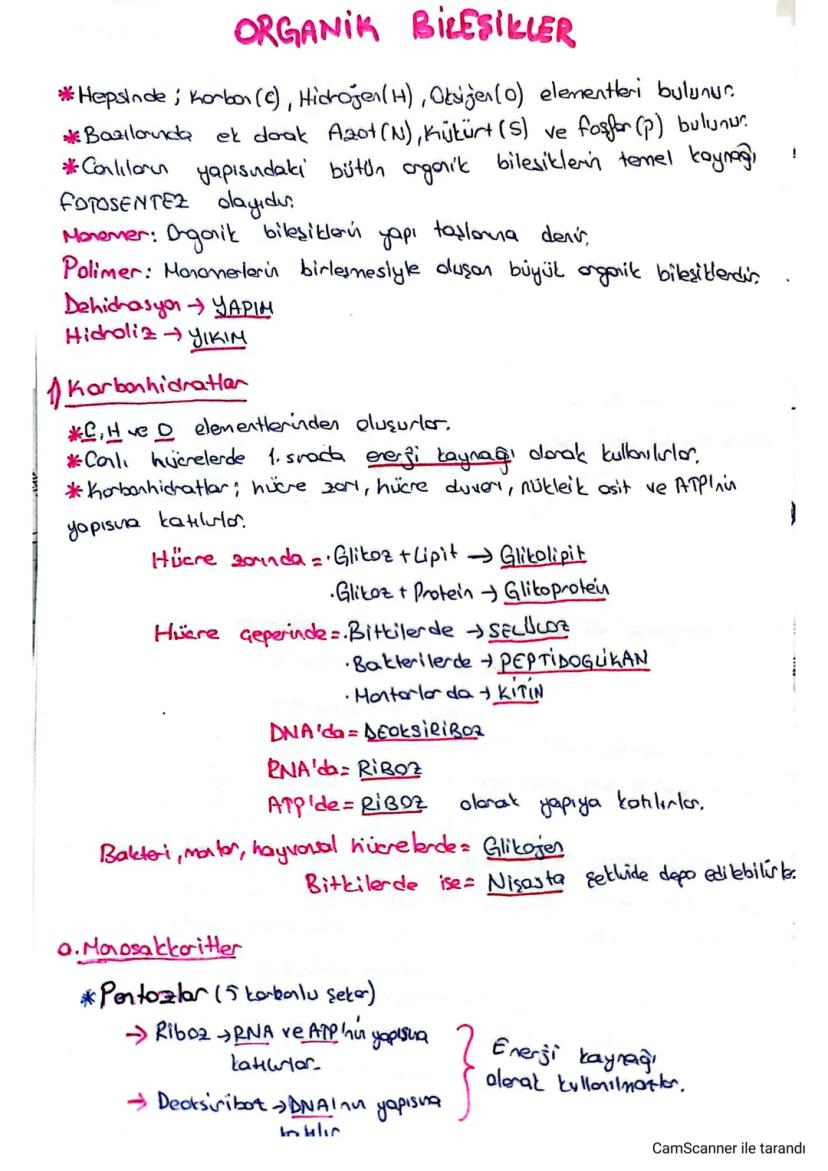 ORGANİK BİLEŞİKLER
*Hepsinde ; Karbon(C), Hidrojen(H), Oksijen(O) elementleri bulunur.
*Bazılarında ek olarak Azot(N), Kükürt(S) ve fosfor(p) bulunur.
*Canlıların yapısındaki bütün organik bileşiklerin temel kaynağı !
FOTOSENTEZ olayıdır.
Monomer: Organik bileşiklerin yapı taşlarına denir.
Polimer: Monomerlerin birleşmesiyle oluşan büyük organik bileşiklerdir.
Dehidrasyon → YAPIM
Hidroliz → YIKIM
1) Karbonhidratlar
*C, H ve O elementlerinden oluşurlar.
*Canlı hücrelerde 1. sırada enerji kaynağı olarak kullanılırlar.
*Karbonhidratlar; hücre zarı, hücre duvarı, nükleik asit ve ATP'nin
yapısına katılırlar.
Hücre zarında = ·Glikoz + Lipit → Glikolipit
·Glikoz + Protein → Glikoprotein
Hücre çeperinde = ·Bitkilerde → SELÜLOZ
·Bakterilerde → PEPTİDOGLİKAN
·Mantarlar da → KİTİN
DNA'da = DEOKSİRİBOZ
RNA'da = RİBOZ
ATP'de = RİBOZ olarak yapıya katılırlar.
Bakteri, mantar, hayvansal hücrelerde = Glikojen
Bitkilerde ise = Nişasta şeklinde depo edilebilirler.
a. Monosakkaritler
*Pentozlar (5 karbonlu şeker)
→ Riboz → RNA ve ATP'nin yapısına
katılırlar.
Enerji kaynağı
olarak kullanılmazlar.
→ Deoksiriboz → DNA'nın yapısına
katılır
CamScanner ile tarandı